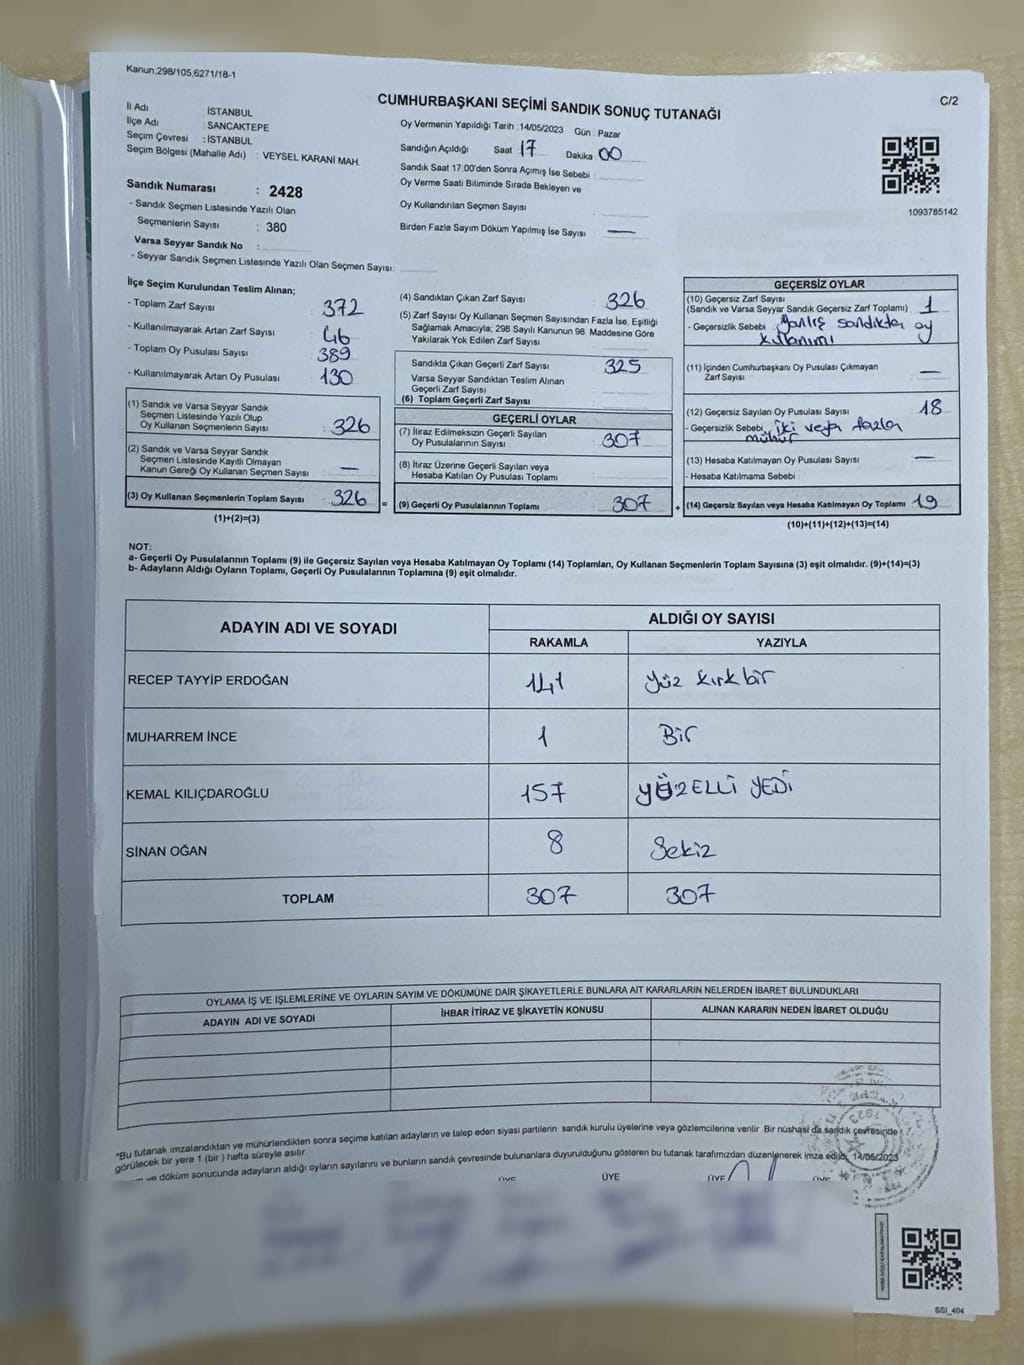 Kanun;298/105,6271/18-1
CUMHURBAŞKANI SEÇİMİ SANDIK SONUÇ TUTANAĞI
C/2
İl Adı : İSTANBUL
İlçe Adı : SANCAKTEPE
Seçim Çevresi : İSTANBUL
Seçim Bölgesi (Mahalle Adı) : VEYSEL KARANİ MAH.
Sandık Numarası : 2428
- Sandık Seçmen Listesinde Yazılı Olan
Seçmenlerin Sayısı : 380
Varsa Seyyar Sandık No :
- Seyyar Sandık Seçmen Listesinde Yazılı Olan Seçmen Sayısı:
Oy Vermenin Yapıldığı Tarih :14/05/2023 Gün : Pazar
Sandığın Açıldığı Saat 17 Dakika 00
Sandık Saat 17:00'den Sonra Açımış İse Sebebi :
Oy Verme Saati Bitiminde Sırada Bekleyen ve
Oy Kullandırılan Seçmen Sayısı :
Birden Fazla Sayım Döküm Yapılmış İse Sayısı : —
1093785142
İlçe Seçim Kurulundan Teslim Alınan;
- Toplam Zarf Sayısı : 372
- Kullanılmayarak Artan Zarf Sayısı : 46
- Toplam Oy Pusulası Sayısı : 389
- Kullanılmayarak Artan Oy Pusulası : 130
(1) Sandık ve Varsa Seyyar Sandık
Seçmen Listesinde Yazılı Olup
Oy Kullanan Seçmenlerin Sayısı : 326
(2) Sandık ve Varsa Seyyar Sandık
Seçmen Listesinde Kayıtlı Olmayan
Kanun Gereği Oy Kullanan Seçmen Sayısı : —
(3) Oy Kullanan Seçmenlerin Toplam Sayısı : 326 =
(1)+(2)=(3)
(4) Sandıktan Çıkan Zarf Sayısı : 326
(5) Zarf Sayısı Oy Kullanan Seçmen Sayısından Fazla İse, Eşitliği
Sağlamak Amacıyla; 298 Sayılı Kanunun 98. Maddesine Göre
Yakılarak Yok Edilen Zarf Sayısı :
Sandıkta Çıkan Geçerli Zarf Sayısı : 325
Varsa Seyyar Sandıktan Teslim Alınan
Geçerli Zarf Sayısı :
(6) Toplam Geçerli Zarf Sayısı
GEÇERLİ OYLAR
(7) İtiraz Edilmeksizin Geçerli Sayılan
Oy Pusulalarının Sayısı : 307
(8) İtiraz Üzerine Geçerli Sayılan veya
Hesaba Katılan Oy Pusulası Toplamı :
(9) Geçerli Oy Pusulalarının Toplamı : 307 +
GEÇERSİZ OYLAR
(10) Geçersiz Zarf Sayısı
(Sandık ve Varsa Seyyar Sandık Geçersiz Zarf Toplamı) : 1
- Geçersizlik Sebebi : Yanlış sandıkta oy
kullanımı
(11) İçinden Cumhurbaşkanı Oy Pusulası Çıkmayan
Zarf Sayısı : —
(12) Geçersiz Sayılan Oy Pusulası Sayısı : 18
- Geçersizlik Sebebi : iki veya fazla
mühür
(13) Hesaba Katılmayan Oy Pusulası Sayısı : —
- Hesaba Katılmama Sebebi
(14) Geçersiz Sayılan veya Hesaba Katılmayan Oy Toplamı : 19
(10)+(11)+(12)+(13)=(14)
NOT:
a- Geçerli Oy Pusulalarının Toplamı (9) ile Geçersiz Sayılan veya Hesaba Katılmayan Oy Toplamı (14) Toplamları, Oy Kullanan Seçmenlerin Toplam Sayısına (3) eşit olmalıdır. (9)+(14)=(3)
b- Adayların Aldığı Oyların Toplamı, Geçerli Oy Pusulalarının Toplamına (9) eşit olmalıdır.
ADAYIN ADI VE SOYADI
ALDIĞI OY SAYISI
RAKAMLA YAZIYLA
RECEP TAYYİP ERDOĞAN 141 yüz kırk bir
MUHARREM İNCE 1 Bir
KEMAL KILIÇDAROĞLU 157 YÜZELLİ YEDİ
SİNAN OĞAN 8 Sekiz
TOPLAM 307 307
OYLAMA İŞ VE İŞLEMLERİNE VE OYLARIN SAYIM VE DÖKÜMÜNE DAİR ŞİKAYETLERLE BUNLARA AİT KARARLARIN NELERDEN İBARET BULUNDUKLARI
ADAYIN ADI VE SOYADI İHBAR İTİRAZ VE ŞİKAYETİN KONUSU ALINAN KARARIN NEDEN İBARET OLDUĞU
*Bu tutanak imzalandıktan ve mühürlendikten sonra seçime katılan adayların ve talep eden siyasi partilerin sandık kurulu üyelerine veya gözlemcilerine verilir. Bir nüshası da sandık çevresinde
görülecek bir yere 1 (bir) hafta süreyle asılır.
ve döküm sonucunda adayların aldığı oyların sayılarını ve bunların sandık çevresinde bulunanlara duyurulduğunu gösteren bu tutanak tarafımızdan düzenlenerek imza edildi. 14/05/2023
ÜYE ÜYE ÜYE ÜYE
SSİ_404